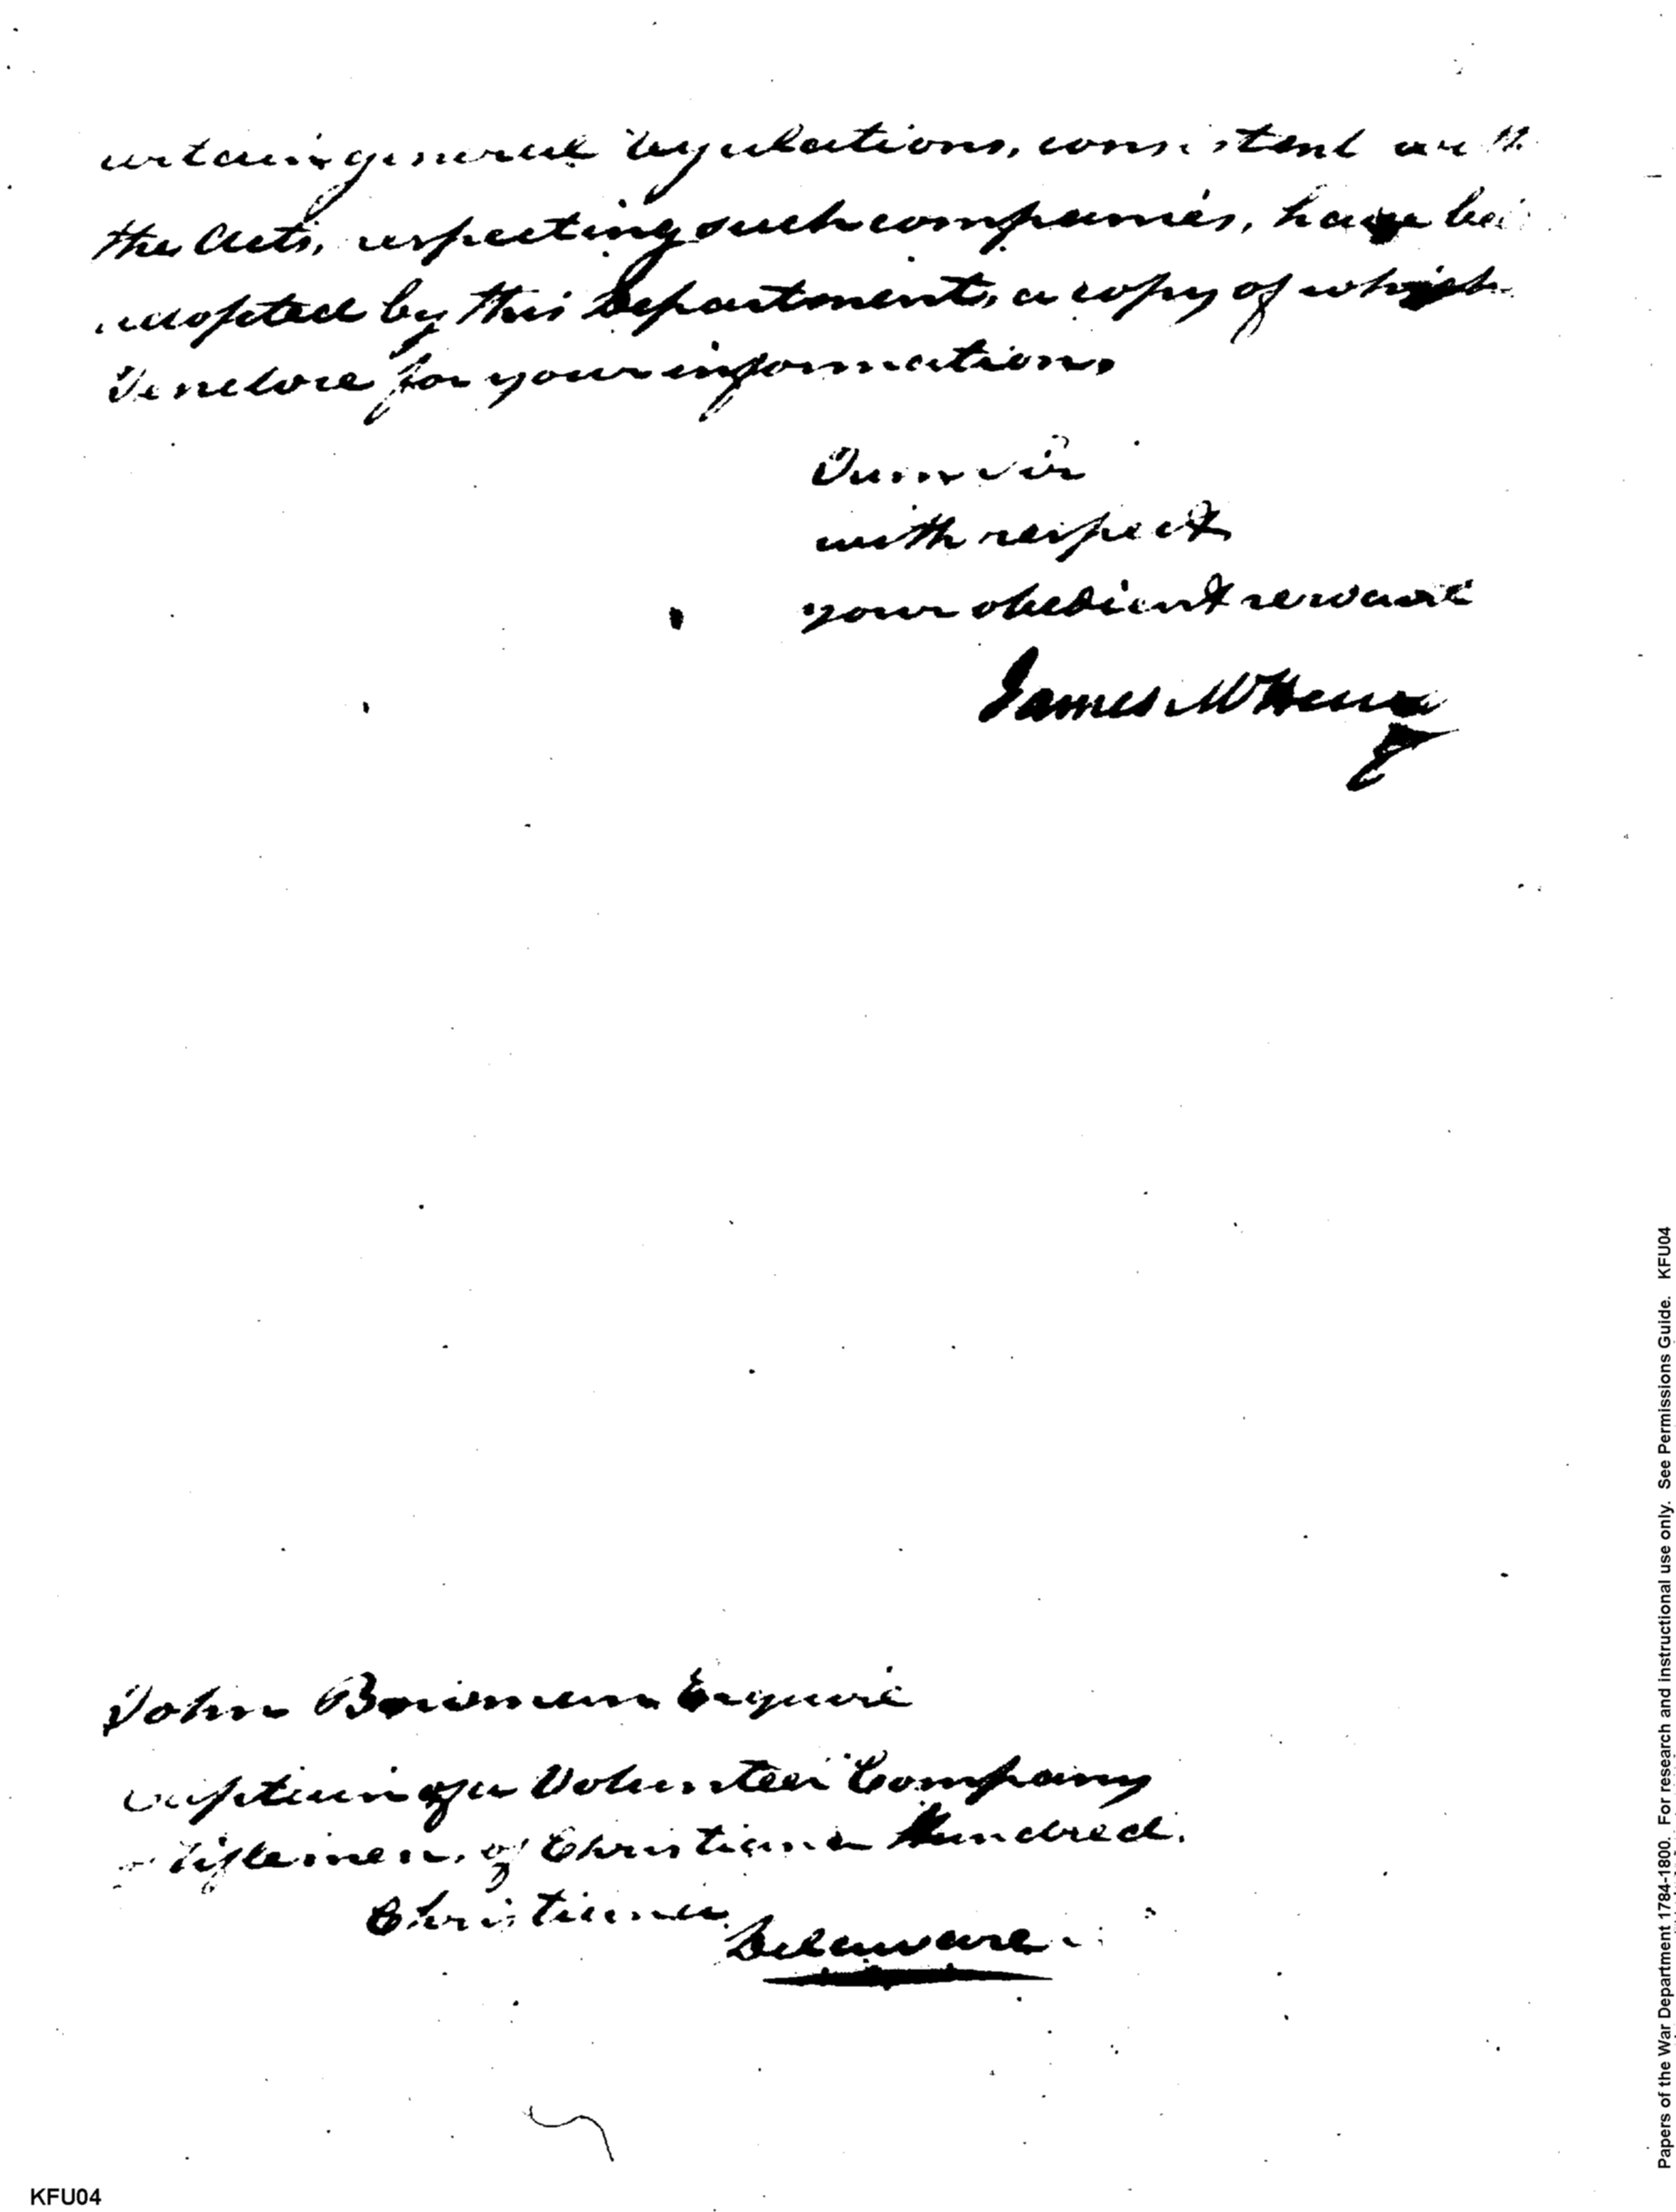 certain general regulations, consistent with
the Acts, respecting such companies, have been
adopted by this Department, a copy of which
I enclose for your information.
I am Sir
with respect
your obedient servant
James McHenry
John Bowman Esquire
Captain of a Volunteer Company
of Riflemen, of Christiana Hundred.
Christiana
Delaware
Papers of the War Department 1784-1800. For research and instructional use only. See Permissions Guide. KFU04
KFU04